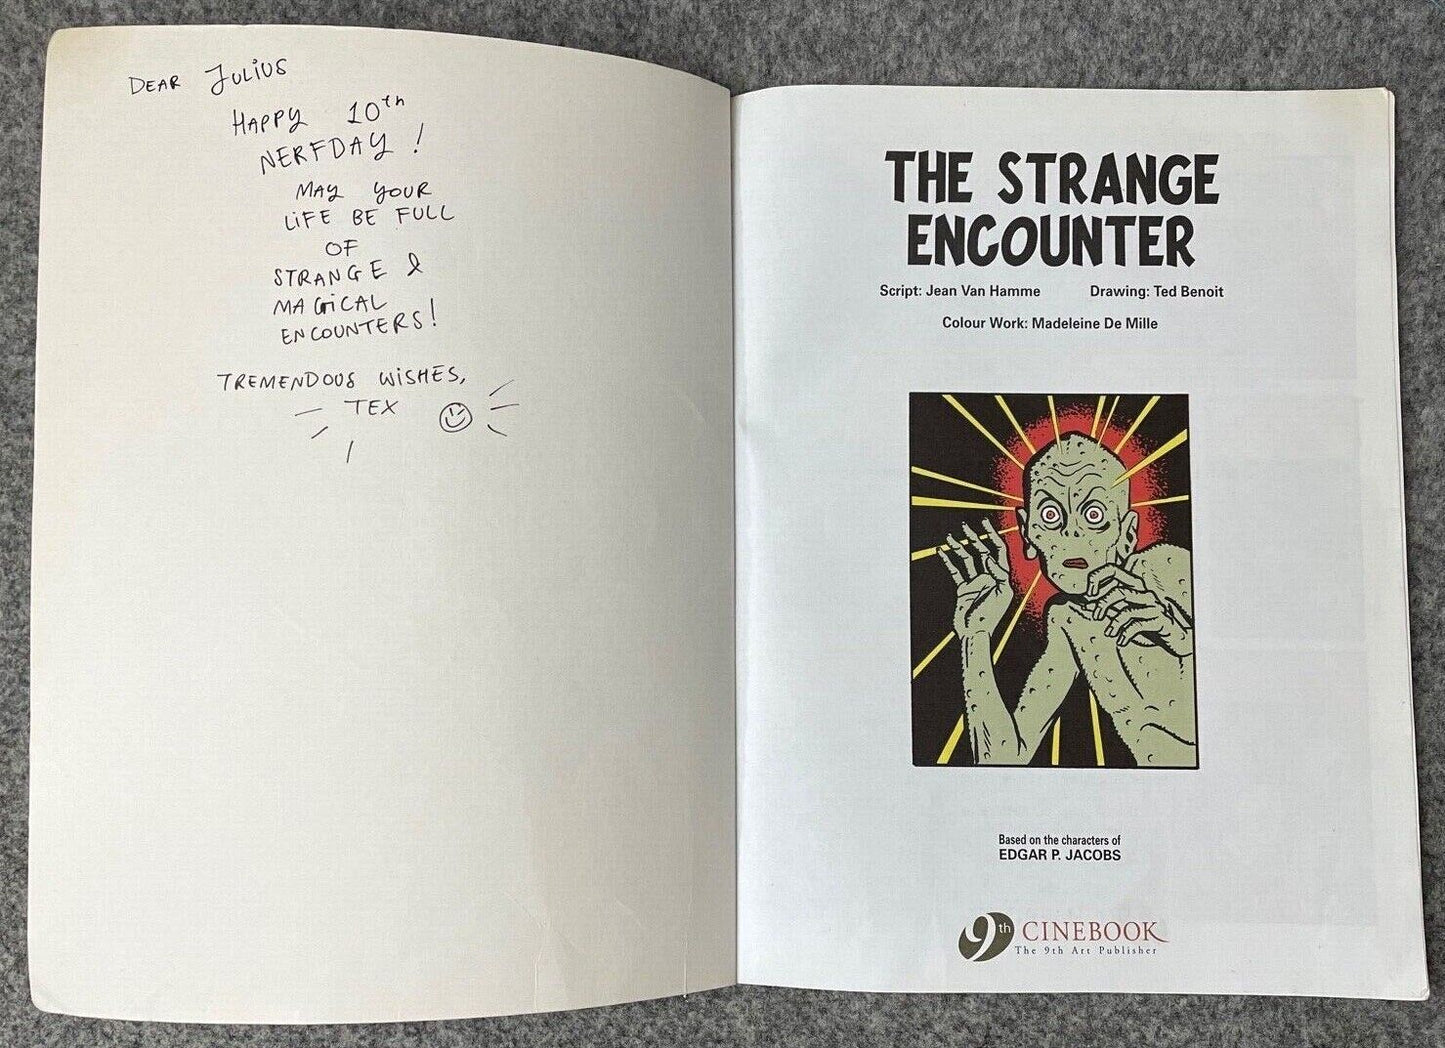 DEAR JULIUS
HAPPY 10th
NERFDAY!
MAY YOUR
LIFE BE FULL
OF
STRANGE &
MAGICAL
ENCOUNTERS!
TREMENDOUS WISHES,
TEX
THE STRANGE
ENCOUNTER
Script: Jean Van Hamme Drawing: Ted Benoit
Colour Work: Madeleine De Mille
Based on the characters of
EDGAR P. JACOBS
9th CINEBOOK
The 9th Art Publisher